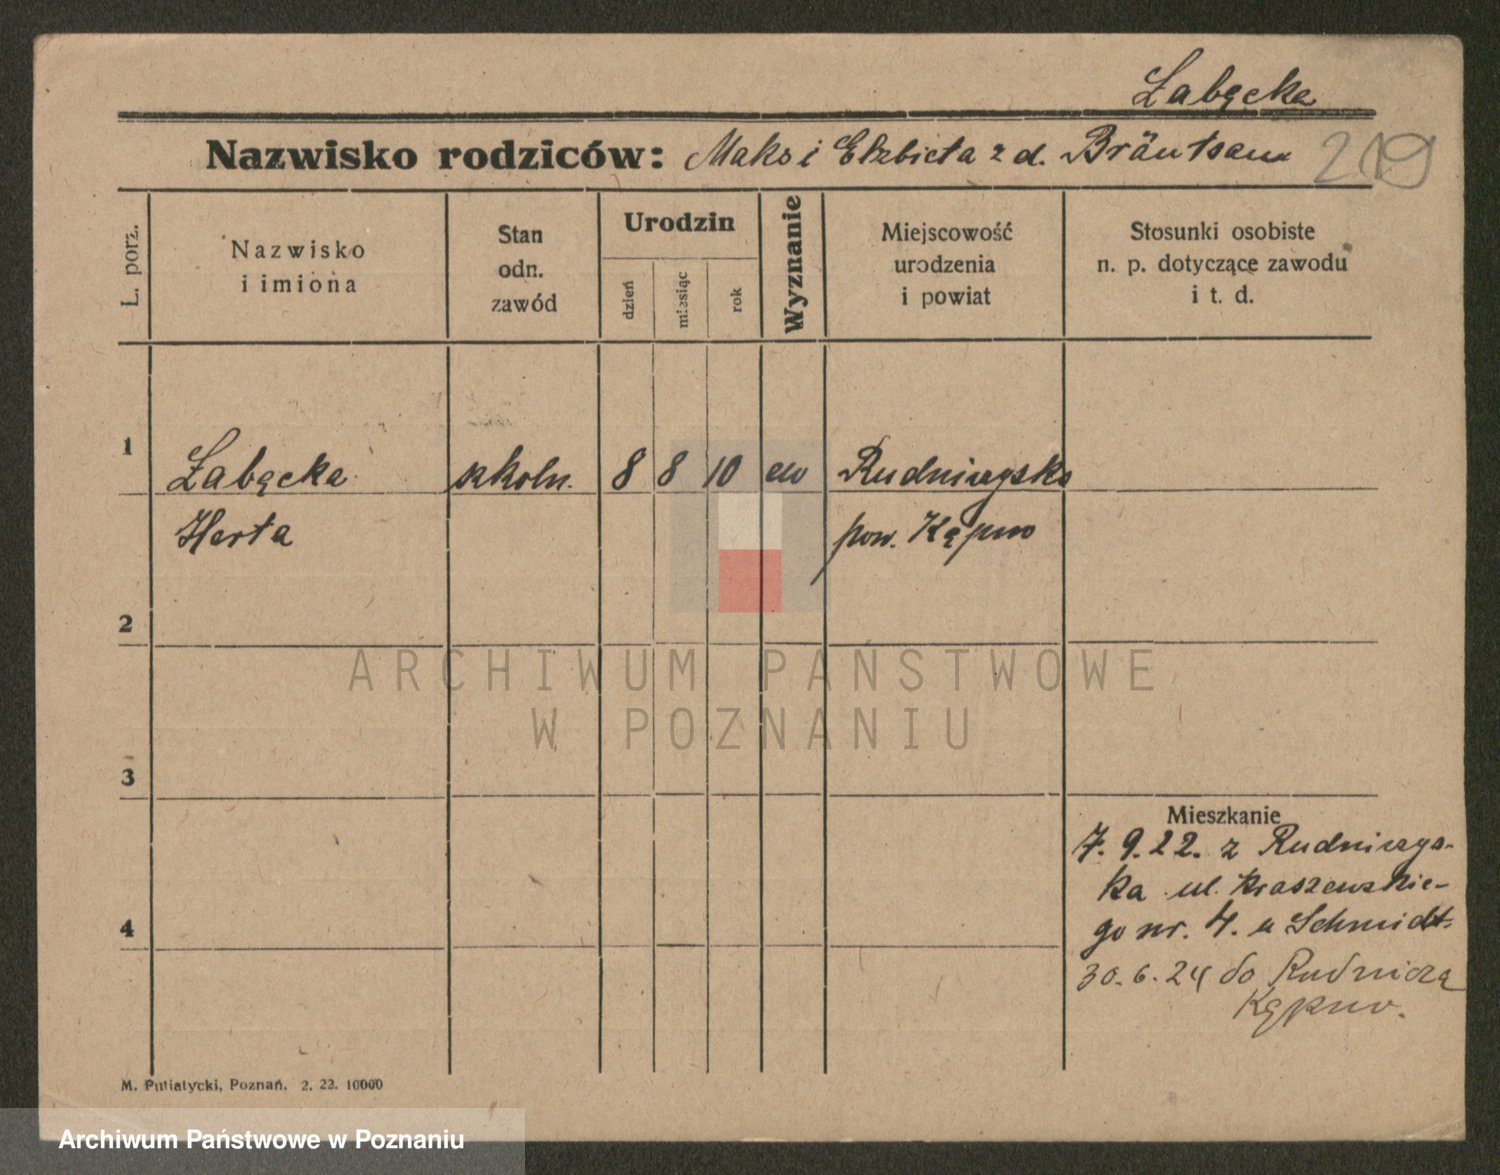 Łabęcka
Nazwisko rodziców: Maks i Elzbieta z d. Bräutsam
219
L. porz.
Nazwisko
i imiona
Stan
odn.
zawód
Urodzin
dzień
miesiąc
rok
Wyznanie
Miejscowość
urodzenia
i powiat
Stosunki osobiste
n. p. dotyczące zawodu
i t. d.
1
Łabęcka szkoln. 8 8 10 ew Rudniczysko
Herta pow. Kępno
2
ARCHIWUM PAŃSTWOWE
W POZNANIU
3
Mieszkanie
7.9.22. z Rudniczys-
ka ul. Kraszewskie-
4
go nr. 4. u Schmidt.
30.6.24 do
Kępno.
M. Putiatycki, Poznań. 2. 22. 10000
Archiwum Państwowe w Poznaniu